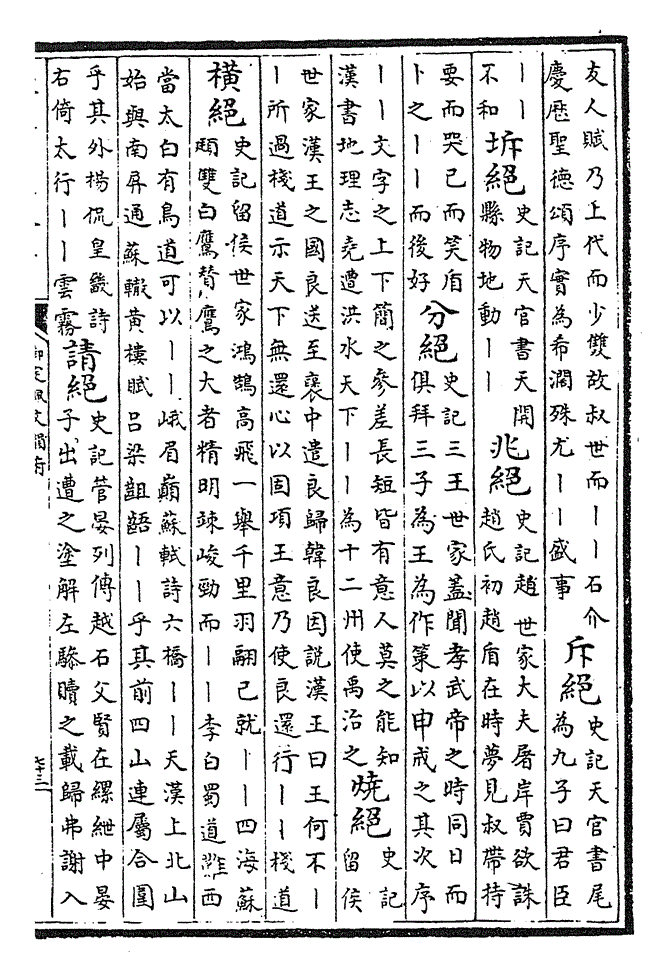 友人賦乃上代而少雙故叔世而〡〡石介
慶歷聖德頌序實為希濶殊尤〡〡盛事
斥絕
史記天官書尾
為九子曰君臣
〡〡
不和
坼絕
史記天官書天開
縣物地動〡〡
兆絕
史記趙世家大夫屠岸賈欲誅
趙氏初趙盾在時夢見叔帶持
要而哭已而笑盾
卜之〡〡而後好
分絕
史記三王世家蓋聞孝武帝之時同日而
俱拜三子為王為作策以申戒之其次序
〡〡文字之上下簡之參差長短皆有意人莫之能知
漢書地理志堯遭洪水天下〡〡為十二州使禹治之
燒絕
史記
留侯
世家漢王之國良送至褒中遣良歸韓良因說漢王曰王何不〡
〡所過棧道示天下無還心以固項王意乃使良還行〡〡棧道
橫絕
史記留侯世家鴻鵠高飛一舉千里羽翮已就〡〡四海蘇
頲雙白鷹贊鷹之大者精明竦峻勁而〡〡李白蜀道難西
當太白有鳥道可以〡〡峨眉巔蘇軾詩六橋〡〡天漢上北山
始與南屏通蘇轍黃樓賦呂梁齟齬〡〡乎其前四山連屬合圍
乎其外楊侃皇畿詩
右倚太行〡〡雲霧
請絕
史記管晏列傳越石父賢在縲紲中晏
子出遭之塗解左驂贖之載歸弗謝入